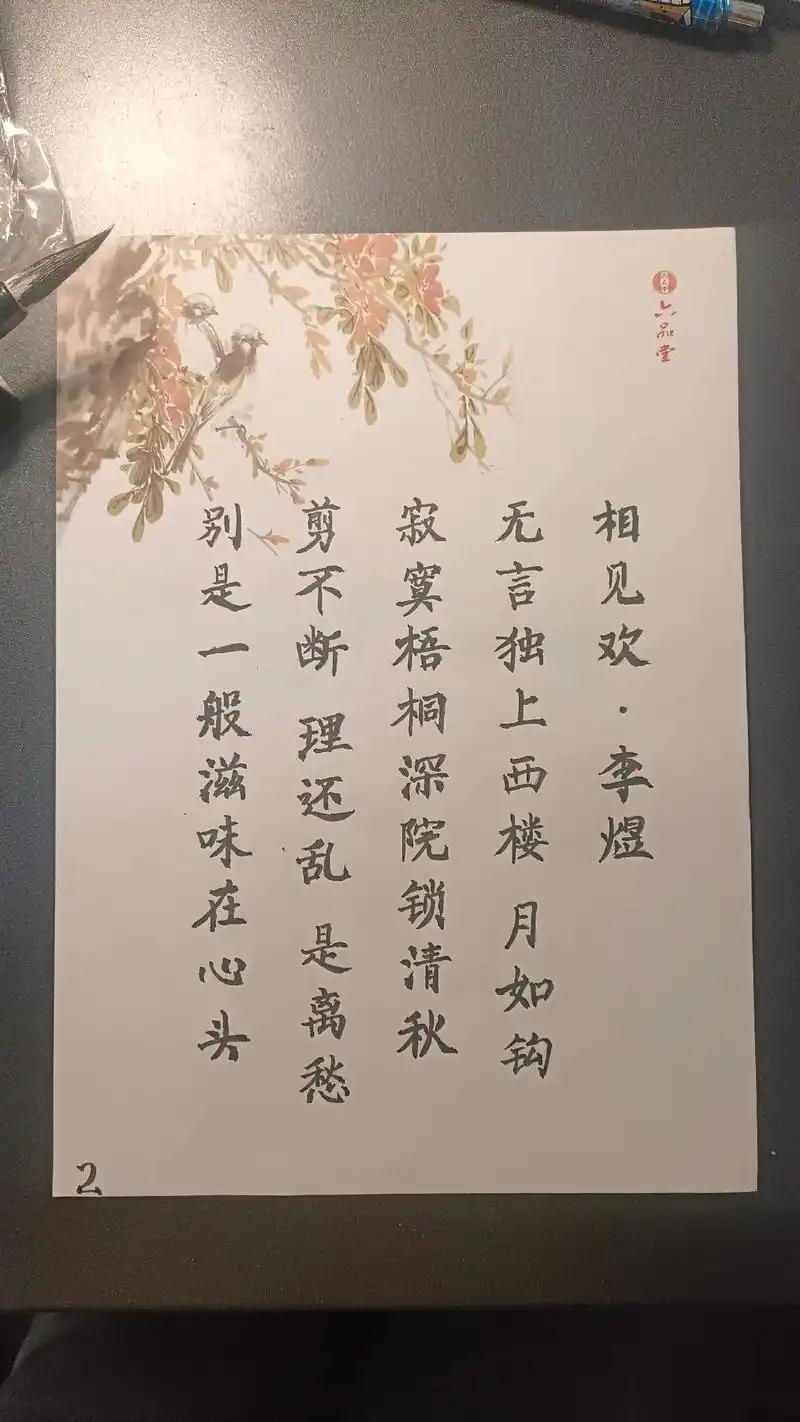 六品堂
相见欢·李煜
无言独上西楼 月如钩
寂寞梧桐深院锁清秋
剪不断 理还乱 是离愁
别是一般滋味在心头
2